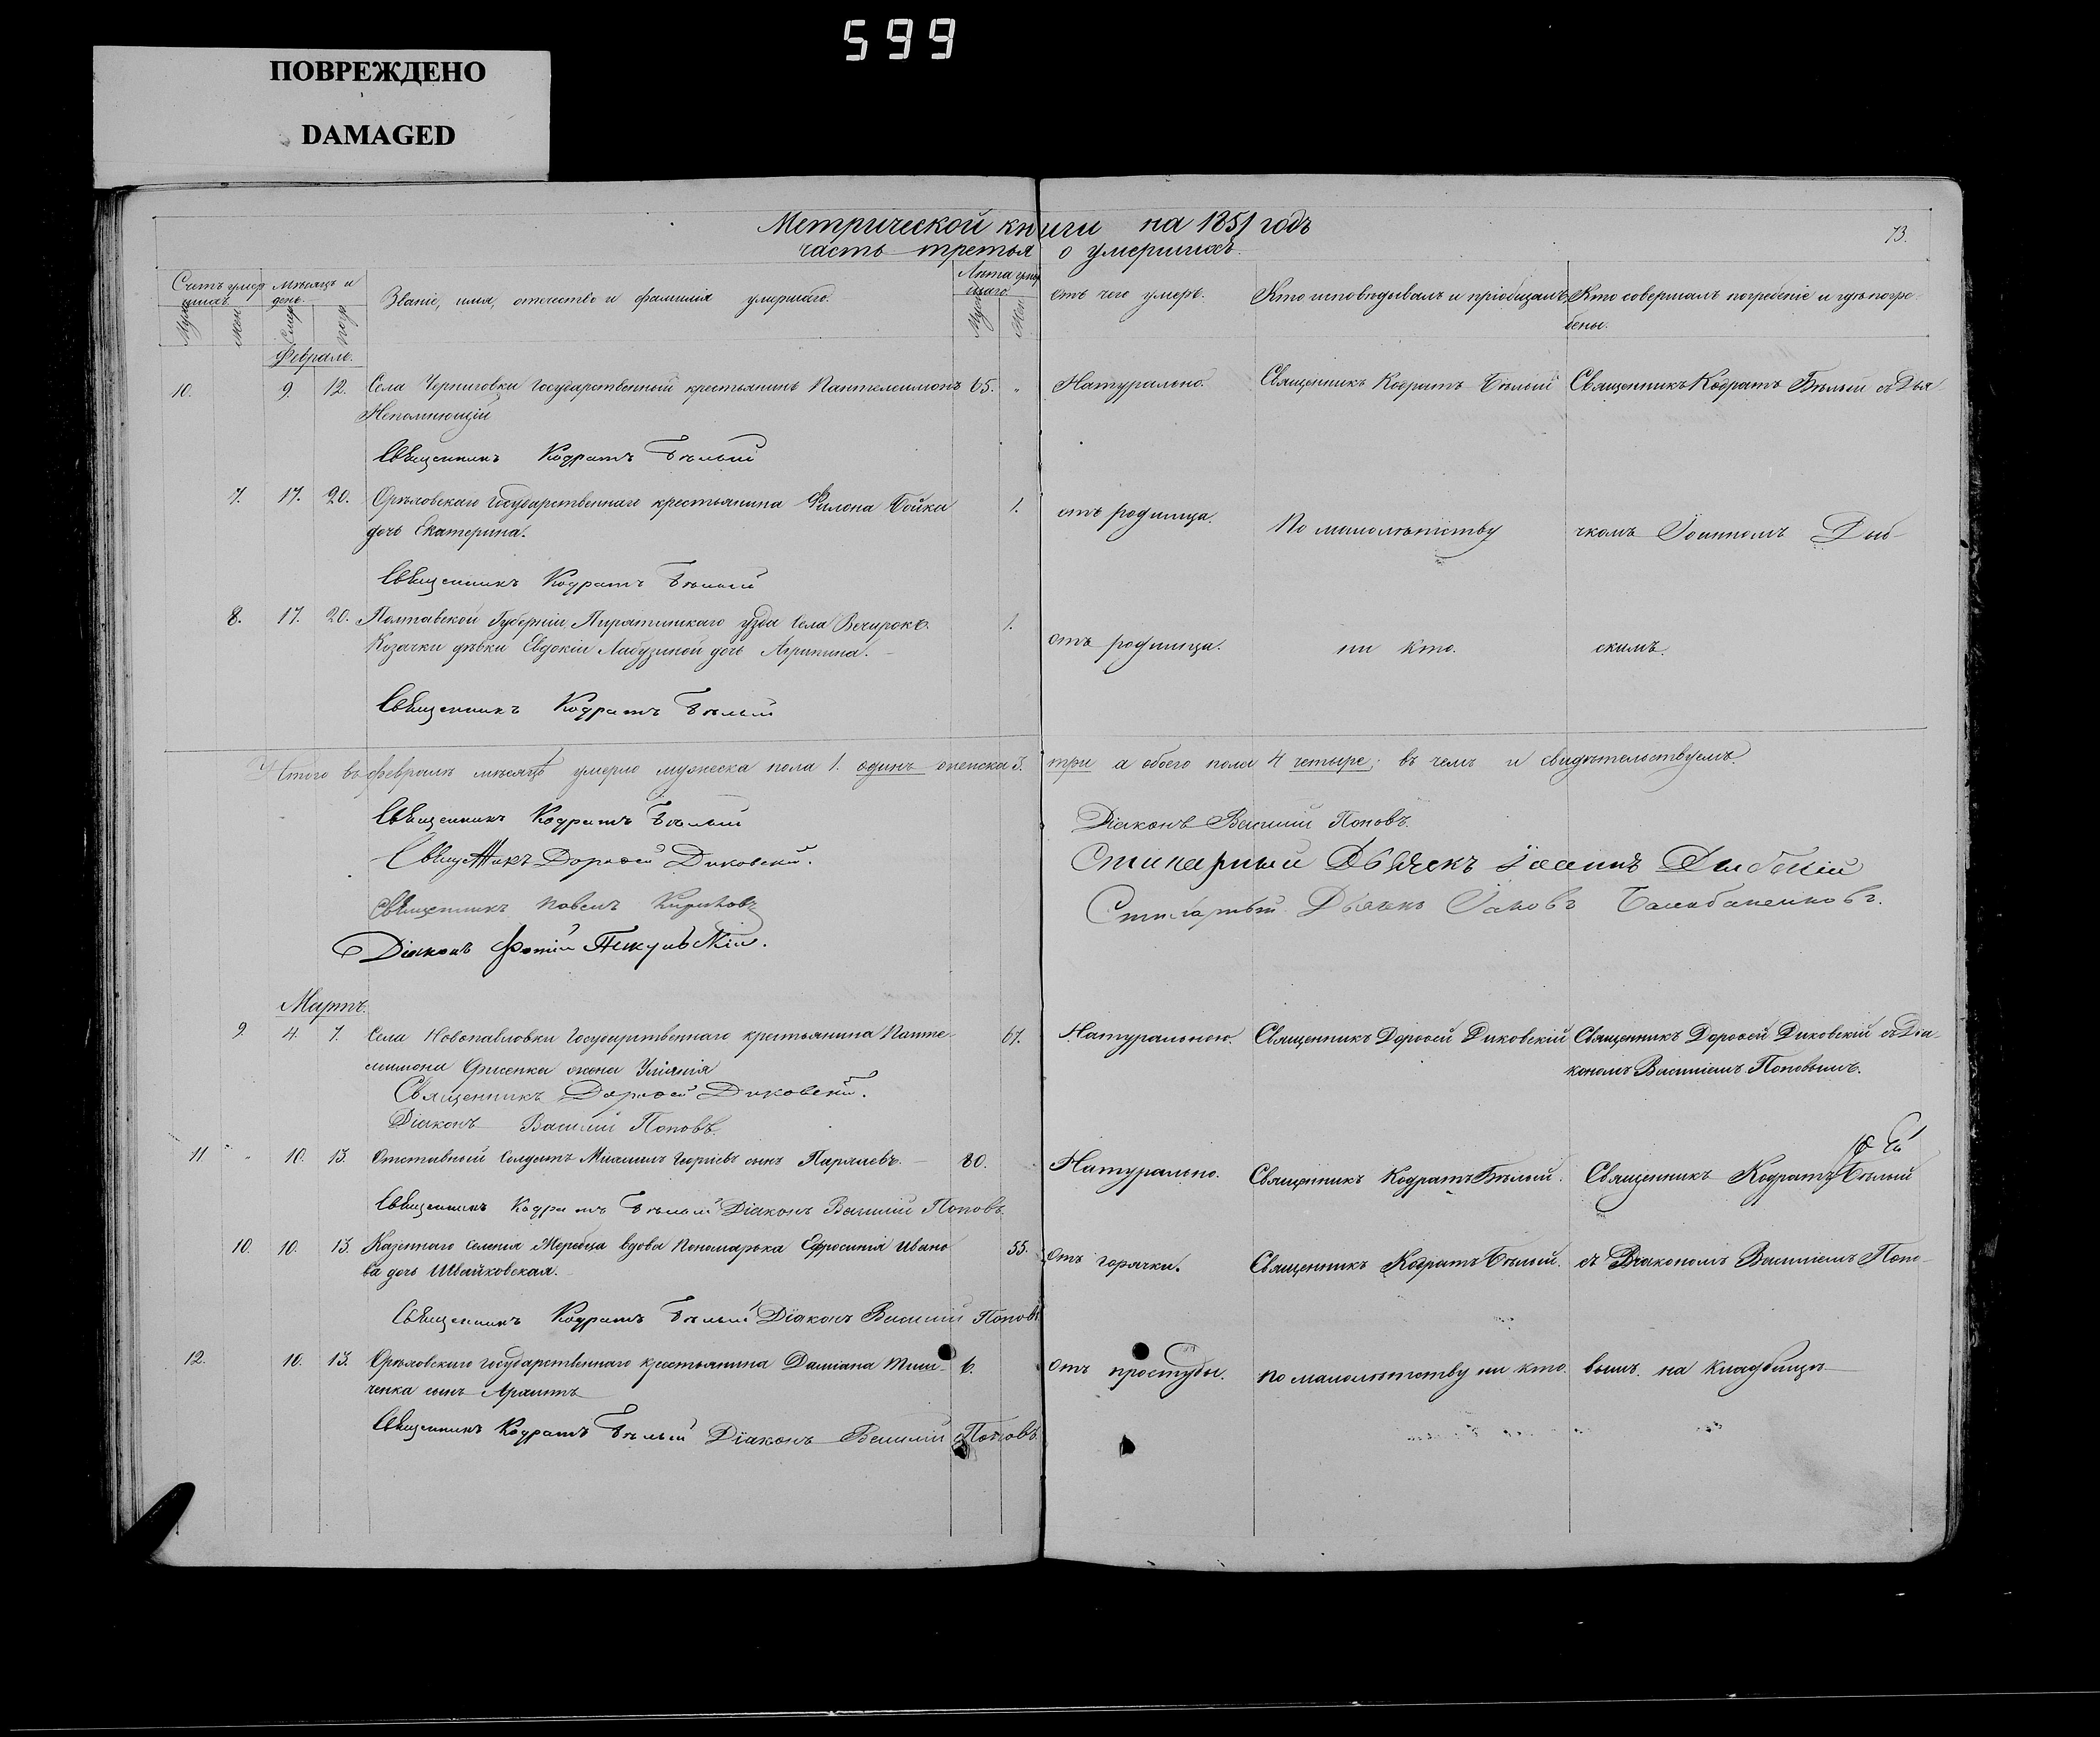 599
ПОВРЕЖДЕНО
DAMAGED
Метрической книги на 1851 годъ
часть третья о умершихъ.
73.
Счетъ умер
шихъ.
Муж
Жен
мѣсяцъ и
день.
Смер
Погр
Званіе, имя, отечество и фамилія умершаго.
Лѣта умер
шаго
Муж
Жен
отъ чего умеръ.
Кто исповѣдывалъ и пріобщалъ
Кто совершалъ погребеніе и гдѣ погре-
бены.
Февраль.
10. 9. 12. Села Черниговки Государственный крестьянинъ Пантелеимонъ 65. " Натурально. Священникъ Кодратъ Бѣлый Священникъ Кодратъ Бѣлый съ Дья
Непомнющій
Священникъ Кодратъ Бѣлый
7. 17. 20. Орѣховскаго Государственнаго крестьянина Филона Бойка 1. отъ родимца. По малолѣтству чкомъ Іоанномъ Дыб-
дочь Екатерина.
Священникъ Кодратъ Бѣлый
8. 17. 20. Полтавской Губерніи Пирятинскаго уѣзда села Вечирокъ. 1. отъ родимца. ни кто. скимъ.
Козачки дѣвки Евдокіи Лабузиной дочь Агрипина.
Священникъ Кодратъ Бѣлый
Итого въ февралѣ мѣсяцѣ умерло мужеска пола 1. одинъ женска 3. три а обоего пола 4 четыре; въ чемъ и свидѣтельствуемъ.
Священникъ Кодратъ Бѣлый
Священникъ Дорофей Диковскій.
Священникъ Павелъ
Діаконъ Фотій
Діаконъ Василій Поповъ.
Стихарный Дьячекъ Іоаннъ Дыбскій
Стихарный Дьячекъ Іаковъ Балабаненковъ.
Мартъ.
9. 4. 7. Села Новопавловки Государственнаго крестьянина Панте- 67. Натуральною. Священникъ Дорофей Диковскій Священникъ Дорофей Диковскій съ Діа-
леимона жена Уліянія кономъ Василіемъ Поповымъ.
Священникъ Дорофей Диковскій.
Діаконъ Василій Поповъ.
11 " 10. 13. Отставный Солдатъ Михаилъ Георгіевъ сынъ 80. Натурально. Священникъ Кодратъ Бѣлый. Священникъ Кодратъ Бѣлый
Священникъ Кодратъ Бѣлый Діаконъ Василій Поповъ.
10. 10. 13. Казеннаго селенія Жеребца вдова Пономарька Ефросинія Ивано 55. Отъ горячки. Священникъ Кодратъ Бѣлый. съ Діакономъ Василіемъ Попо-
ва дочь Швайковская.
Священникъ Кодратъ Бѣлый Діаконъ Василій Поповъ.
12. 10. 13. Орѣховскаго государственнаго крестьянина Даміана Тим- 6. Отъ простуды. по малолѣтству ни кто. вымъ. на кладбищѣ
ченка сынъ Архипъ
Священникъ Кодратъ Бѣлый Діаконъ Василій Поповъ.